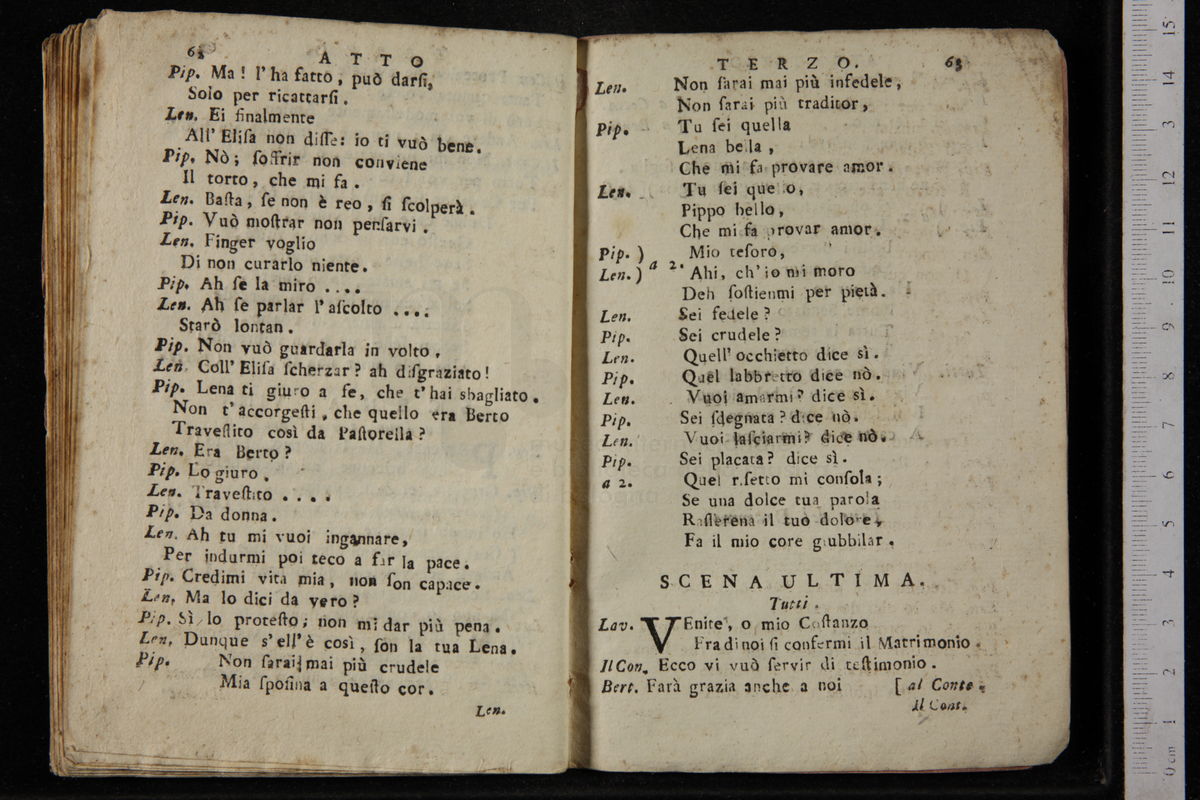 62
ATTO
Pip. Ma! l'ha fatto, può darſi,
Solo per ricattarſi.
Len. Ei finalmente
All' Eliſa non diſſe: io ti vuò bene.
Pip. Nò; ſoffrir non conviene
Il torto, che mi fa.
Len. Baſta, ſe non è reo, ſi ſcolperà.
Pip. Vuò moſtrar non penſarvi.
Len. Finger voglio
Di non curarlo niente.
Pip. Ah ſe la miro ....
Len. Ah ſe parlar l'aſcolto ....
Starò lontan.
Pip. Non vuò guardarla in volto,
Len. Coll' Eliſa ſcherzar? ah diſgraziato!
Pip. Lena ti giuro a fe, che t'hai sbagliato.
Non t'accorgeſti, che quello era Berto
Traveſtito così da Paſtorella?
Len. Era Berto?
Pip. Lo giuro.
Len. Traveſtito ....
Pip. Da donna.
Len. Ah tu mi vuoi ingannare,
Per indurmi poi teco a far la pace.
Pip. Credimi vita mia, non ſon capace.
Len. Ma lo dici da vero?
Pip. Sì, lo proteſto; non mi dar più pena.
Len. Dunque s'ell'è così, ſon la tua Lena.
Pip. Non ſarai mai più crudele
Mia ſpoſina a queſto cor.
Len.
TERZO.
63
Len. Non ſarai mai più infedele,
Non ſarai più traditor,
Pip. Tu ſei quella
Lena bella,
Che mi fa provare amor.
Len. Tu ſei quello,
Pippo bello,
Che mi fa provar amor.
Pip. ) Mio teſoro,
Len. ) a 2. Ahi, ch'io mi moro
Deh ſoſtienmi per pietà.
Len. Sei fedele?
Pip. Sei crudele?
Len. Quell' occhietto dice sì.
Pip. Quel labbretto dice nò.
Len. Vuoi amarmi? dice sì.
Pip. Sei ſdegnata? dice nò.
Len. Vuoi laſciarmi? dice nò.
Pip. Sei placata? dice sì.
a 2. Quel riſetto mi conſola;
Se una dolce tua parola
Raſſerena il tuo dolore,
Fa il mio core giubbilar.
SCENA ULTIMA.
Tutti.
Lav. VEnite, o mio Coſtanzo
Fra di noi ſi confermi il Matrimonio.
Il Con. Ecco vi vuò ſervir di teſtimonio.
Bert. Farà grazia anche a noi [al Conte.
Il Cont.